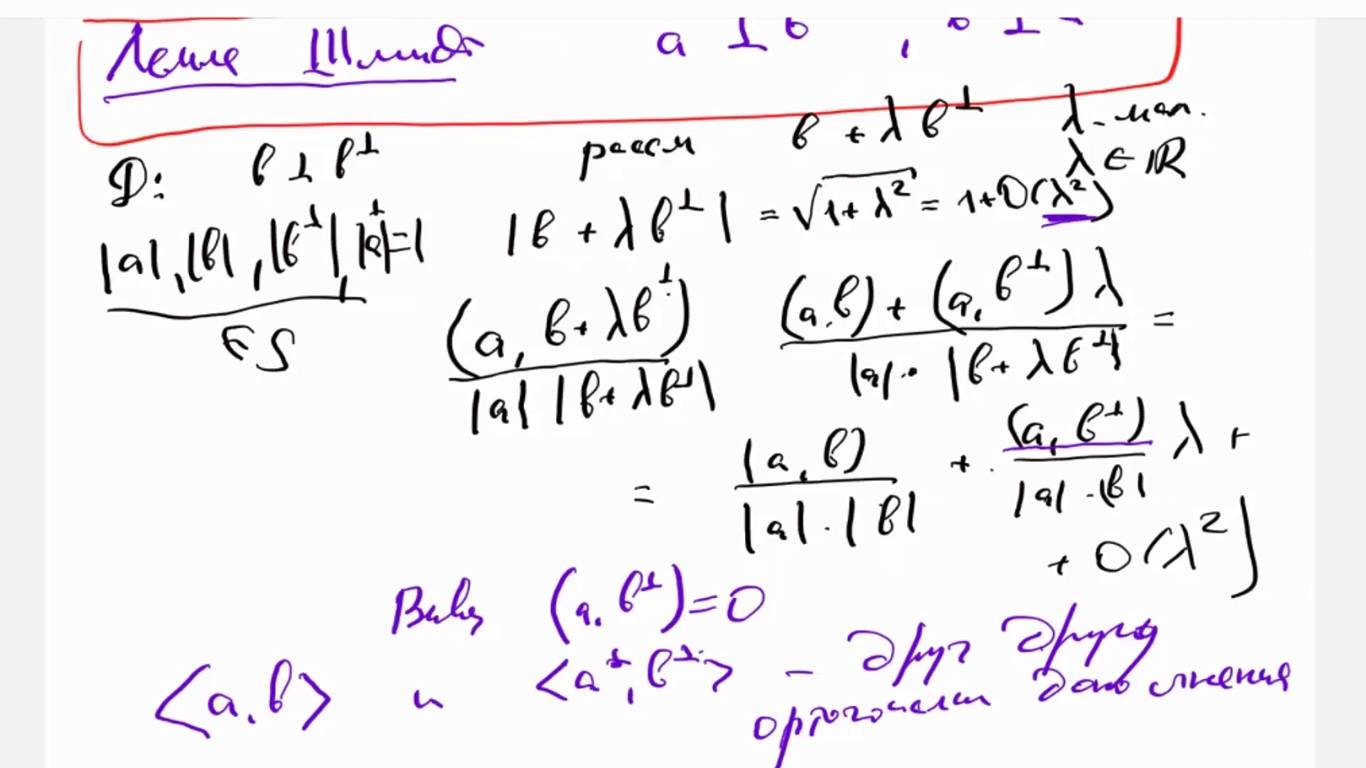 Лемма Шмидта a ⊥ b , b ⊥
D: b ⊥ b^⊥ рассм b + λ b^⊥ λ - мал.
λ ∈ ℝ
|a|, |b|, |b^⊥|, |a^⊥| = 1 |b + λ b^⊥| = √(1 + λ²) = 1 + O(λ²)
∈ S (a, b + λb^⊥) / |a| |b + λb^⊥| (a, b) + (a, b^⊥) λ / |a| · |b + λ b^⊥| =
= (a, b) / |a| · |b| + (a, b^⊥) / |a| · |b| λ +
+ O(λ²)
Вывод (a, b^⊥) = 0
<a, b> и <a^⊥, b^⊥> - друг друга
ортогональн дополнения